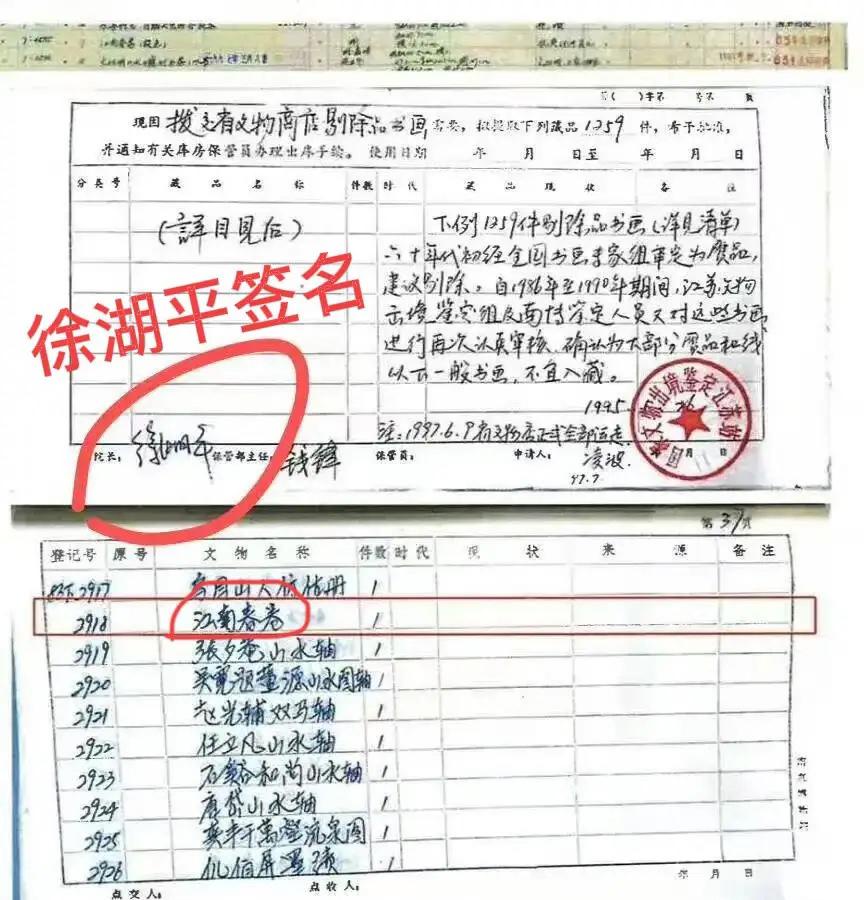 现因 拨交省文物商店剔除品书画 需要，拟提取下列藏品 1259 件，希予批准，
并通知有关库房保管员办理出库手续。 使用日期 年 月 日至 年 月 日
分类号 藏品名称 件数 时代 藏品现状 备注
（詳目見后）
下列1259件剔除品书画（详见清单）
六十年代初经全国书画专家组审定为贋品，
建议剔除。自1986年至1990年期间，江苏文物
出境鉴定组及南博鉴定人员又对这些书画
进行再次认真审核，确认为大部分贋品和线
以下一般书画，不宜入藏。
1995
徐湖平签名
注：1997.6.9
院长： 徐湖平 保管部主任： 钱锋 保管员： 申请人： 凌波
97.7.
国家文物出境鉴定江苏站
第 37 页
登记号 原号 文物名称 件数 时代 现状 来源 备注
2917 1
2918 江南春卷 1
2919 張夕庵山水轴 1
2920 吴寛题董源山水图轴 1
2921 赵光辅双马轴 1
2922 任立凡山水轴 1
2923 石谿和尚山水轴 1
2924 唐岱山水轴 1
2925 1
2926 1
年 月 日
点交人： 点收人：